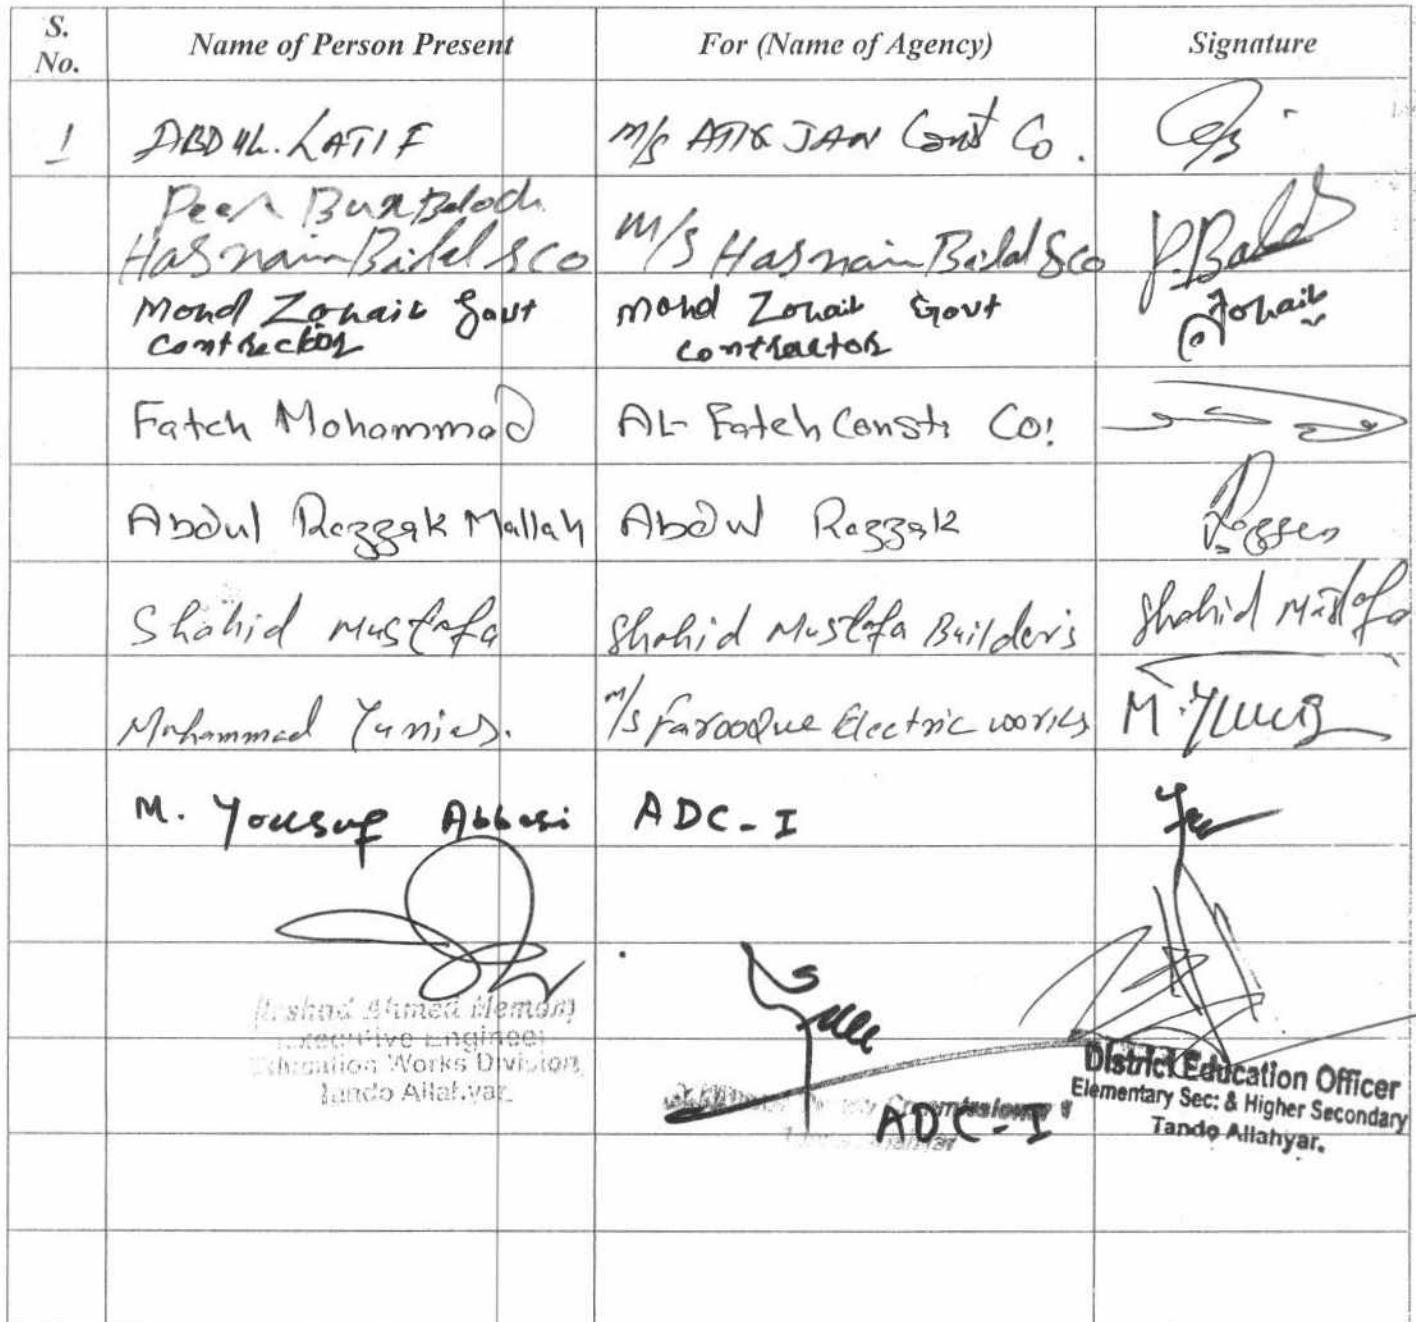 S. No. Name of Person Present For (Name of Agency) Signature
1 ABDUL. LATIF M/S ATIQ JAN Const Co.
Peer Bux Baloch
Hasnain Bilal & Co M/S Hasnain Bilal & Co P.Baloch
Mohd Zohaib Govt Mohd Zohaib Govt Zohaib
Contractor Contractor
Fateh Mohammad AL-Fateh Const: Co!
Abdul Razzak Mallah Abdul Razzak
Shahid Mustafa Shahid Mustafa Builder's Shahid Mustafa
Mohammad Yunies. M/S Farooque Electric works M. Yunus
M. Yousuf Abbasi ADC-I
(Arshad Ahmed Memon)
Executive Engineer
Education Works Division
Tando Allahyar.
Commissioner
ADC-I
District Education Officer
Elementary Sec: & Higher Secondary
Tando Allahyar.